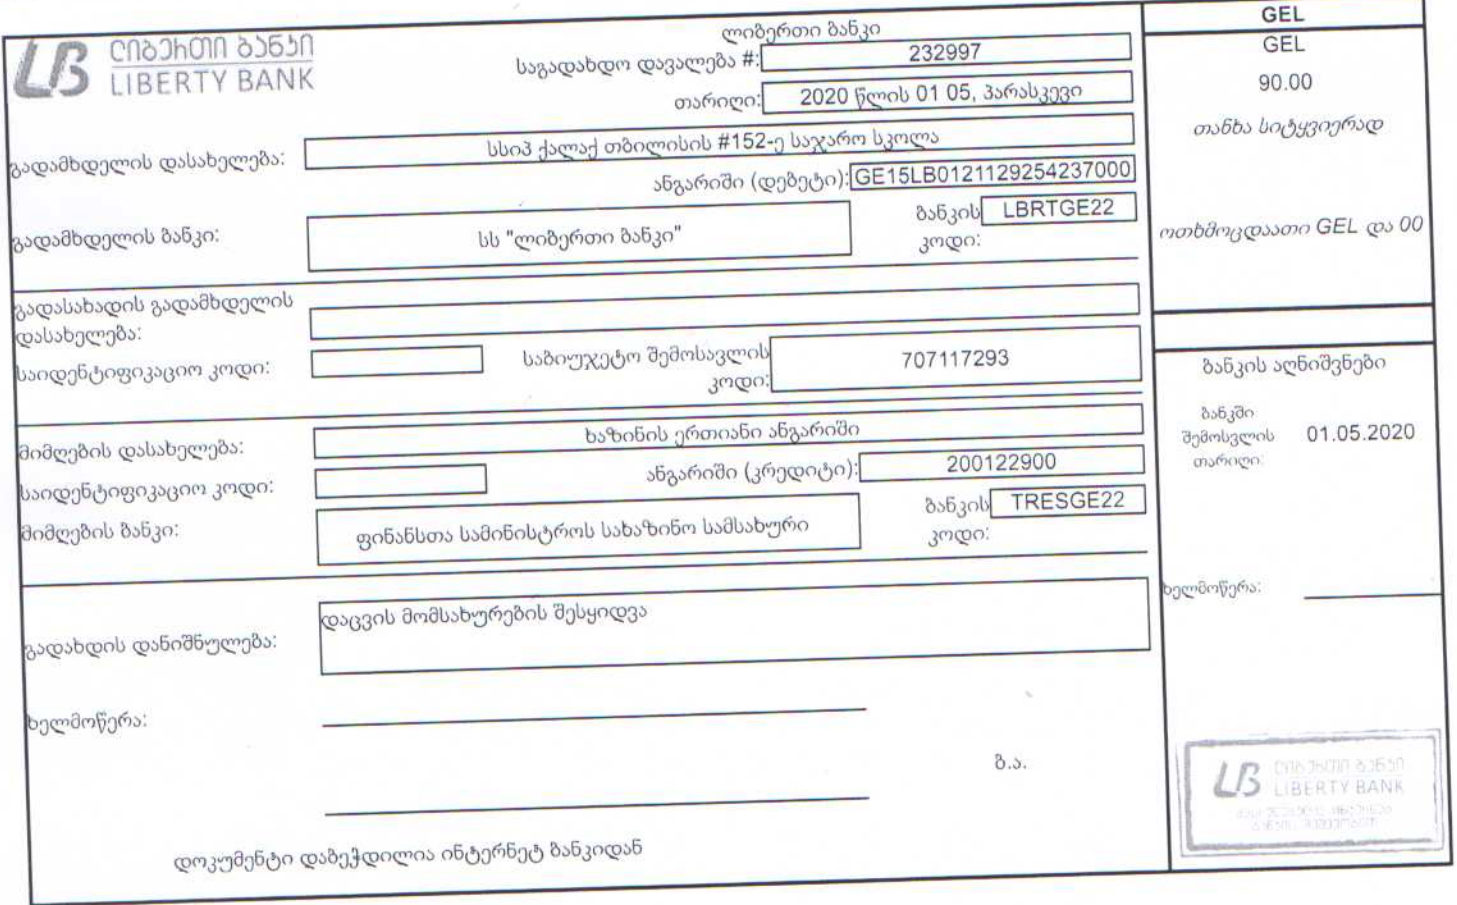 ლიბერთი ბანკი
LIBERTY BANK
ლიბერთი ბანკი
საგადახდო დავალება #: 232997
თარიღი: 2020 წლის 01 05, პარასკევი
გადამხდელის დასახელება: სსიპ ქალაქ თბილისის #152-ე საჯარო სკოლა
ანგარიში (დებეტი): GE15LB0121129254237000
გადამხდელის ბანკი: სს "ლიბერთი ბანკი" ბანკის კოდი: LBRTGE22
გადასახადის გადამხდელის
დასახელება:
საიდენტიფიკაციო კოდი: საბიუჯეტო შემოსავლის კოდი: 707117293
მიმღების დასახელება: ხაზინის ერთიანი ანგარიში
საიდენტიფიკაციო კოდი: ანგარიში (კრედიტი): 200122900
მიმღების ბანკი: ფინანსთა სამინისტროს სახაზინო სამსახური ბანკის კოდი: TRESGE22
გადახდის დანიშნულება: დაცვის მომსახურების შესყიდვა
ხელმოწერა:
ბ.ა.
დოკუმენტი დაბეჭდილია ინტერნეტ ბანკიდან
GEL
GEL
90.00
თანხა სიტყვიერად
ოთხმოცდაათი GEL და 00
ბანკის აღნიშვნები
ბანკში
შემოსვლის 01.05.2020
თარიღი:
ხელმოწერა:
ლიბერთი ბანკი
LIBERTY BANK